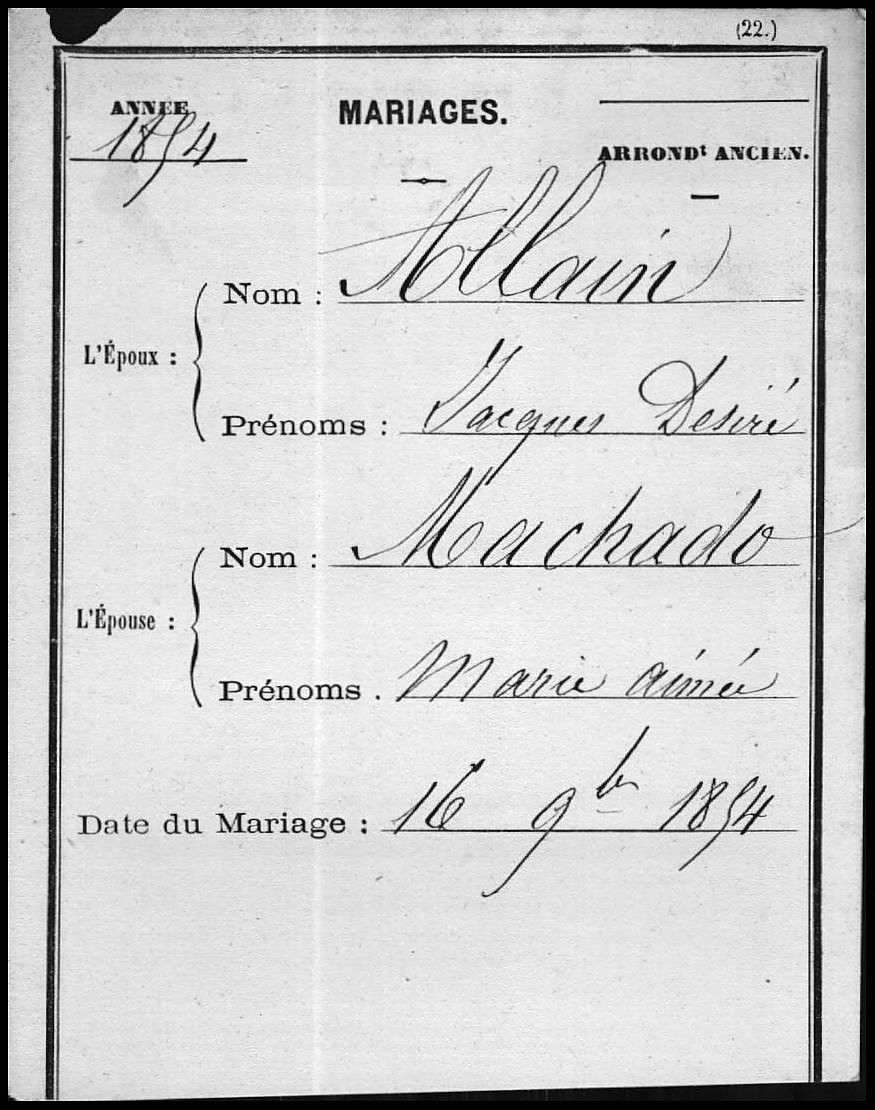 (22.)
ANNÉE
1854
MARIAGES.
ARRONDt ANCIEN.
L'Époux :
Nom : Allain
Prénoms : Jacques Desiré
L'Épouse :
Nom : Machado
Prénoms . Marie aimée
Date du Mariage : 16 9br 1854